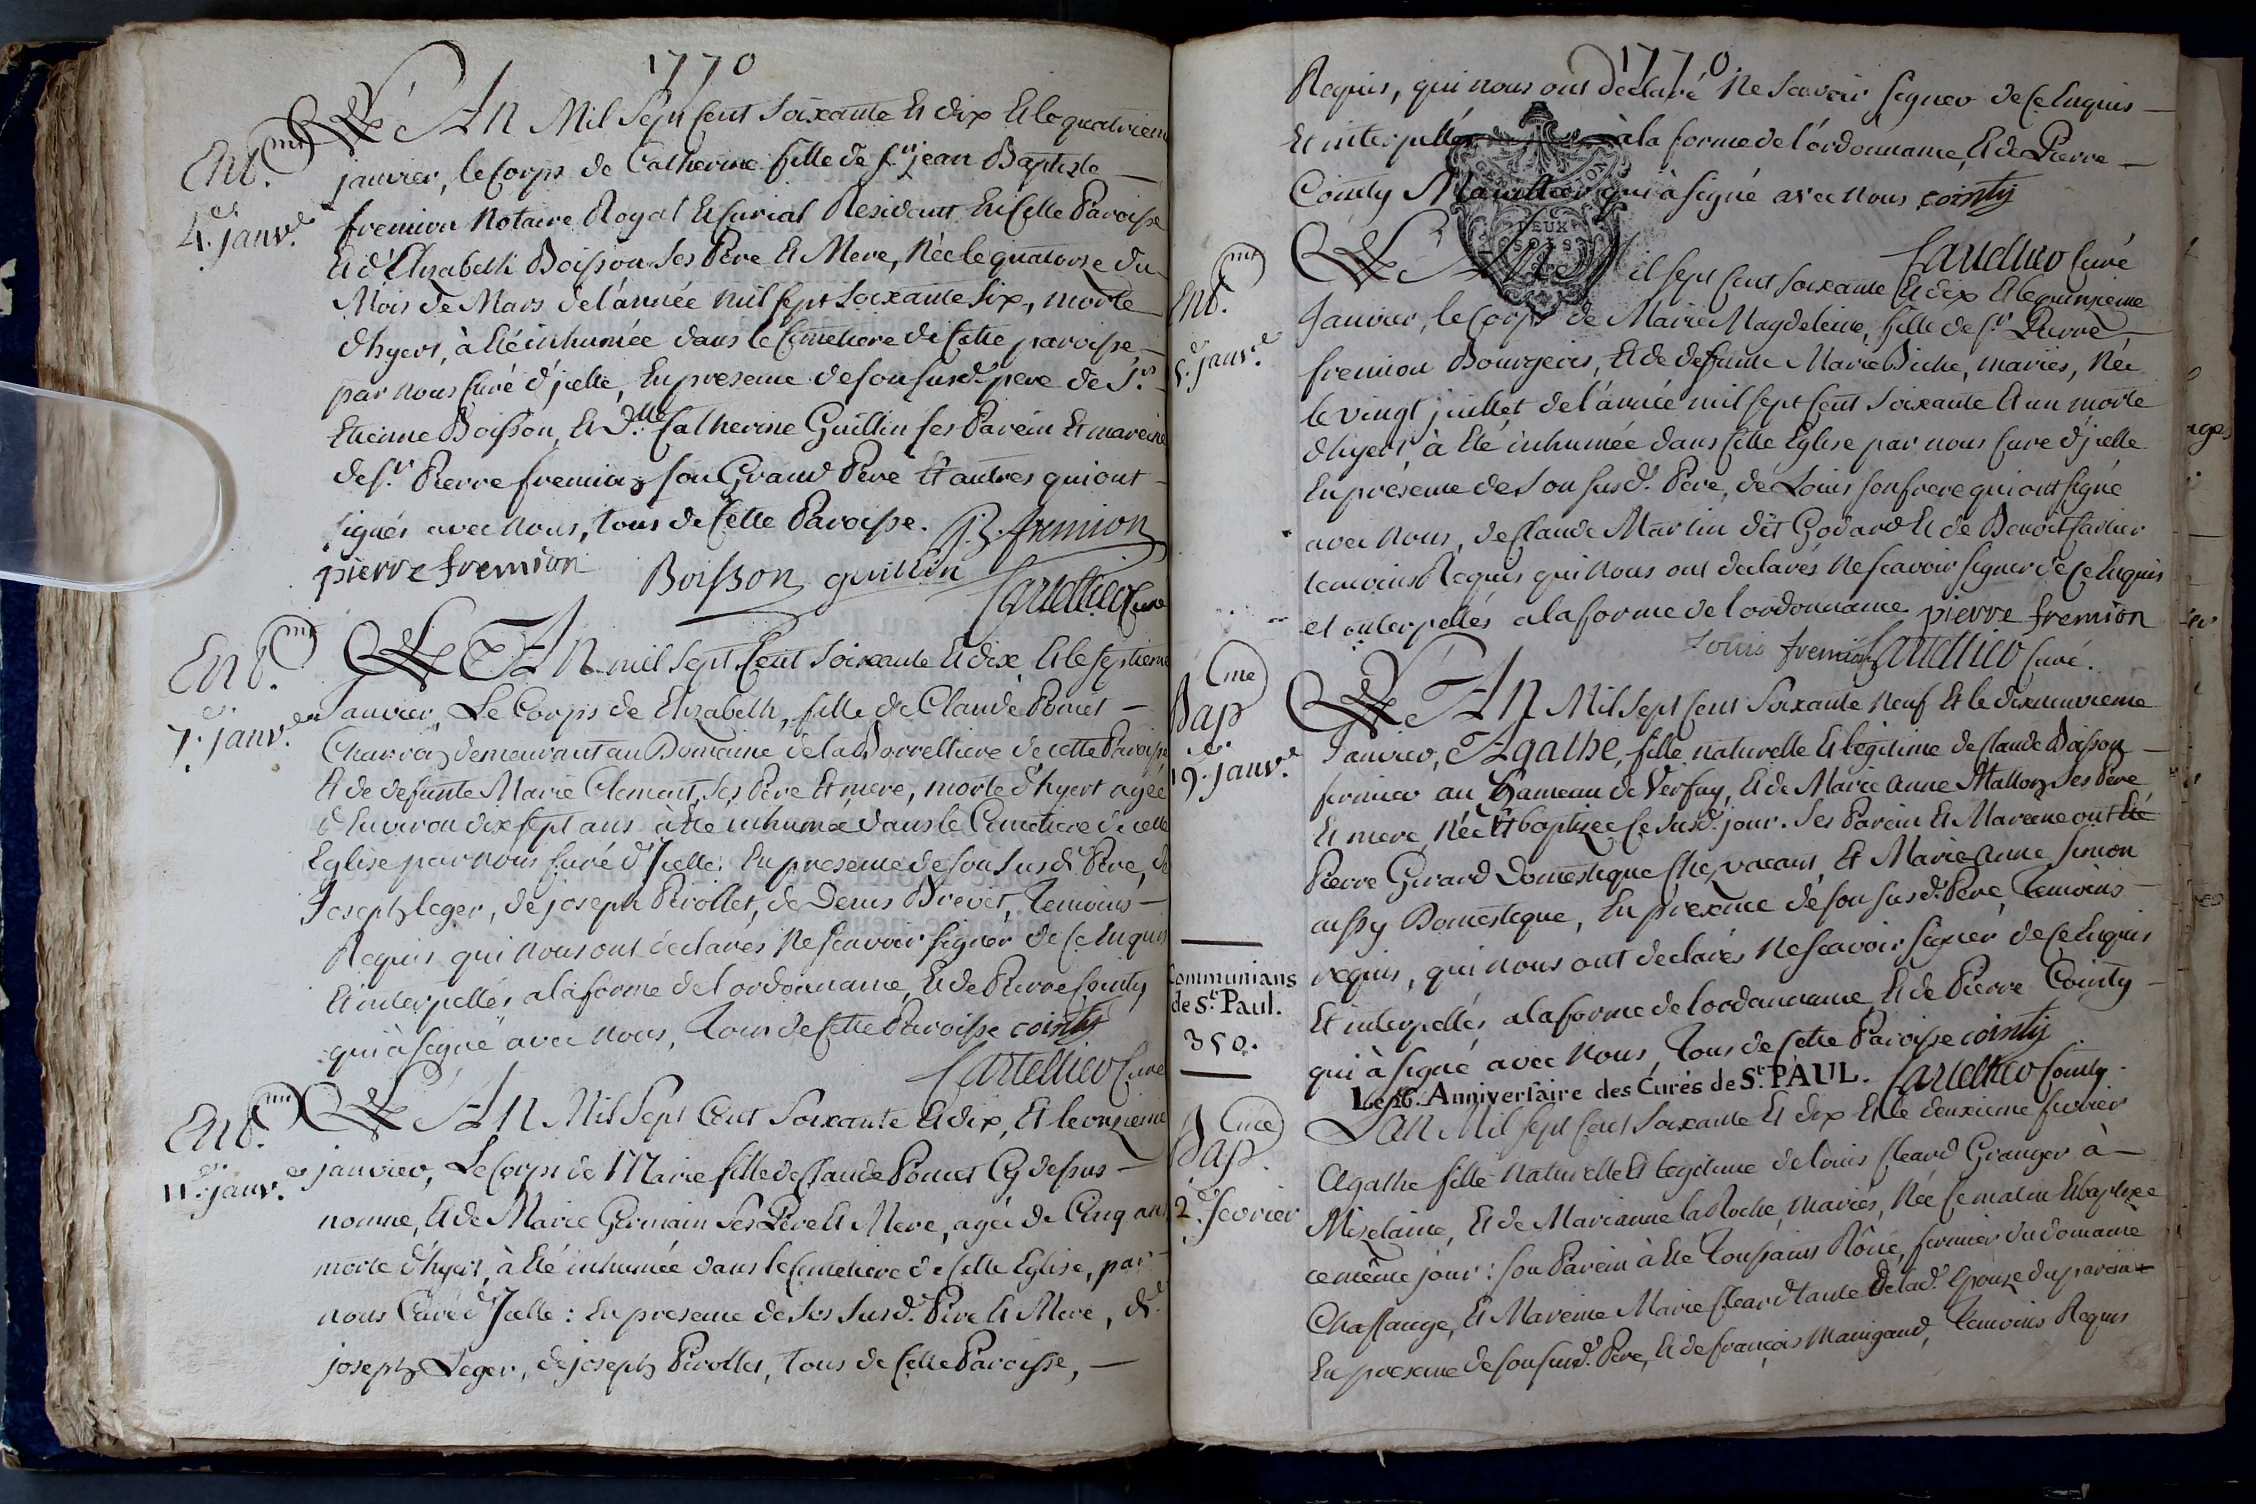 1770
Ent.mt
4.e janv.er
L'An Mil Sept Cent Soixante Et dix Et le quatrieme
janvier, le Corps de Catherine fille de Sr jean Baptiste
fremion Notaire Royal Et Curial Residant En Cette Paroisse
Et d'Elizabeth Boisson Ses Pére Et Mere, Née le quatorze du
Mois de Mars de l'année mil sept soixante six, morte
d'hyert, à Eté inhumée dans le Cimetiere de Cette paroisse
par nous Curé d'jcelle, En presence de son susd. pere de Sr.
Etienne Boisson, Et Dlle. Catherine Guillin ses Parein Et mareine
de Sr. Pierre fremion son Grand Pére Et autres qui ont
signés avec nous, tous de Cette Paroisse. J. B. fremion
pierre fremion Boisson guillin
Cartellier Curé
Ent.mt
7.e janv.er
L'An mil Sept Cent Soixante Et dix, Et le septieme
Janvier, Le Corps de Elizabeth, fille de Claude Poncet
demeurant au Domaine de la de cette Paroisse
Et de defunte Marie Clement, Ses Pére Et mere, morte d'hyert agée
d'Environ dix sept ans à Eté inhumée dans le Cimetiere de cette
Eglise par nous Curé d'Jcelle: En presence de son Susd. Pére, de
Joseph leger, de joseph Pirollet, de Denis Brevet, Temoins
Requis qui nous ont declarés Ne scavoir signer de Ce Enquis
Et interpellés a la forme de l'ordonnance, Et de Pierre Cointy
qui à signé avec nous, Tous de Cette Paroisse cointy
Cartellier Curé
Ent.mt
11.e janv.er
L'An Mil Sept Cent Soixante Et dix, Et le onzieme
janvier, Le Corps de Marie fille de Claude Poncet Cy dessus
nommé, Et de Marie Germain Ses Pére Et Mere, agée de Cinq ans
morte d'hyert, à Eté inhumée dans le Cimetiere de Cette Eglise, par
nous Curé d'Jcelle: En presence de Ses Susd. Pére Et Mere, de
joseph Leger, de joseph Pirollet, tous de Cette Paroisse,
1770
Requis, qui nous ont déclaré Ne Scavoir signer de Ce Enquis
Et interpellés à la forme de l'ordonnance, Et de Pierre
Cointy qui à signé avec nous cointy
DEUX
SOLS
Cartellier Curé
Ent.mt
janv.er
L'An Mil sept Cent soixante Et dix Et le quinzieme
Janvier, le Corps de Marie Magdeleine, fille de Sr Pierre
fremion Bourgeois, Et de defunte Marie Biche, mariés, Née
le vingt juillet de l'année mil sept Cent soixante Et un morte
d'hyert, à Eté inhumée dans Cette Eglise par nous Curé d'jcelle
En presence de Son susd. Pére, de Louis son frere qui ont signé
avec nous, de Claude Martin dit Godard Et de Benoit
temoins Requis qui nous ont declarés Ne scavoir signer de Ce Enquis
et interpellés a la forme de l'ordonnance pierre fremion
Louis fremion Cartellier Curé.
Bap.me
19.e janv.er
L'An Mil Sept Cent Soixante Neuf Et le dixneuvieme
Janvier, Agathe, fille naturelle Et legitime de Claude Boisson
fermier au Hameau de Verfay, Et de Marie Anne Mallon Ses Pére
Et mere, Née Et baptizée Ce susd. jour. Ses Parein Et Mareine ont Eté
Pierre Girard Domestique Chez vacant, Et Marie Anne Simon
aussy Domestique, En presence de son susd. Pére, Temoins
requis, qui nous ont declarés Ne scavoir signer de Ce Enquis
Et interpellés a la forme de l'ordonnance, Et de Pierre Cointy
qui à signé avec Nous, Tous de Cette Paroisse cointy
Communians
de St. Paul.
350.
Le 26. Anniversaire des Curés de St. PAUL. Cartellier
Bap.me
2.e fevrier
L'an Mil sept Cent Soixante Et dix Et le deuxieme fevrier
Agathe fille Naturelle Et legitime de louis Cleard Granger à
Mizelaine, Et de Marianne la Roche, mariés, Née Ce matin Et baptizée
ce même jour: son Parein à Eté Toussaint Rôné, fermier du domaine
Chassange, Et Mareine Marie Cleard tante de lad. Epouse du parein
En presence de son susd. Pére, Et de françois Mainigand, Temoins Requis